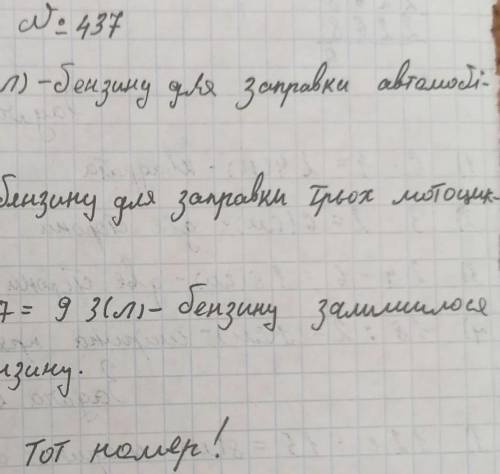 № 437
л) - бензину для заправки автомобі-
бензину для заправки трьох мотоцик-
7 = 93(л) - бензину залишилося
нзину.
Тот номер!